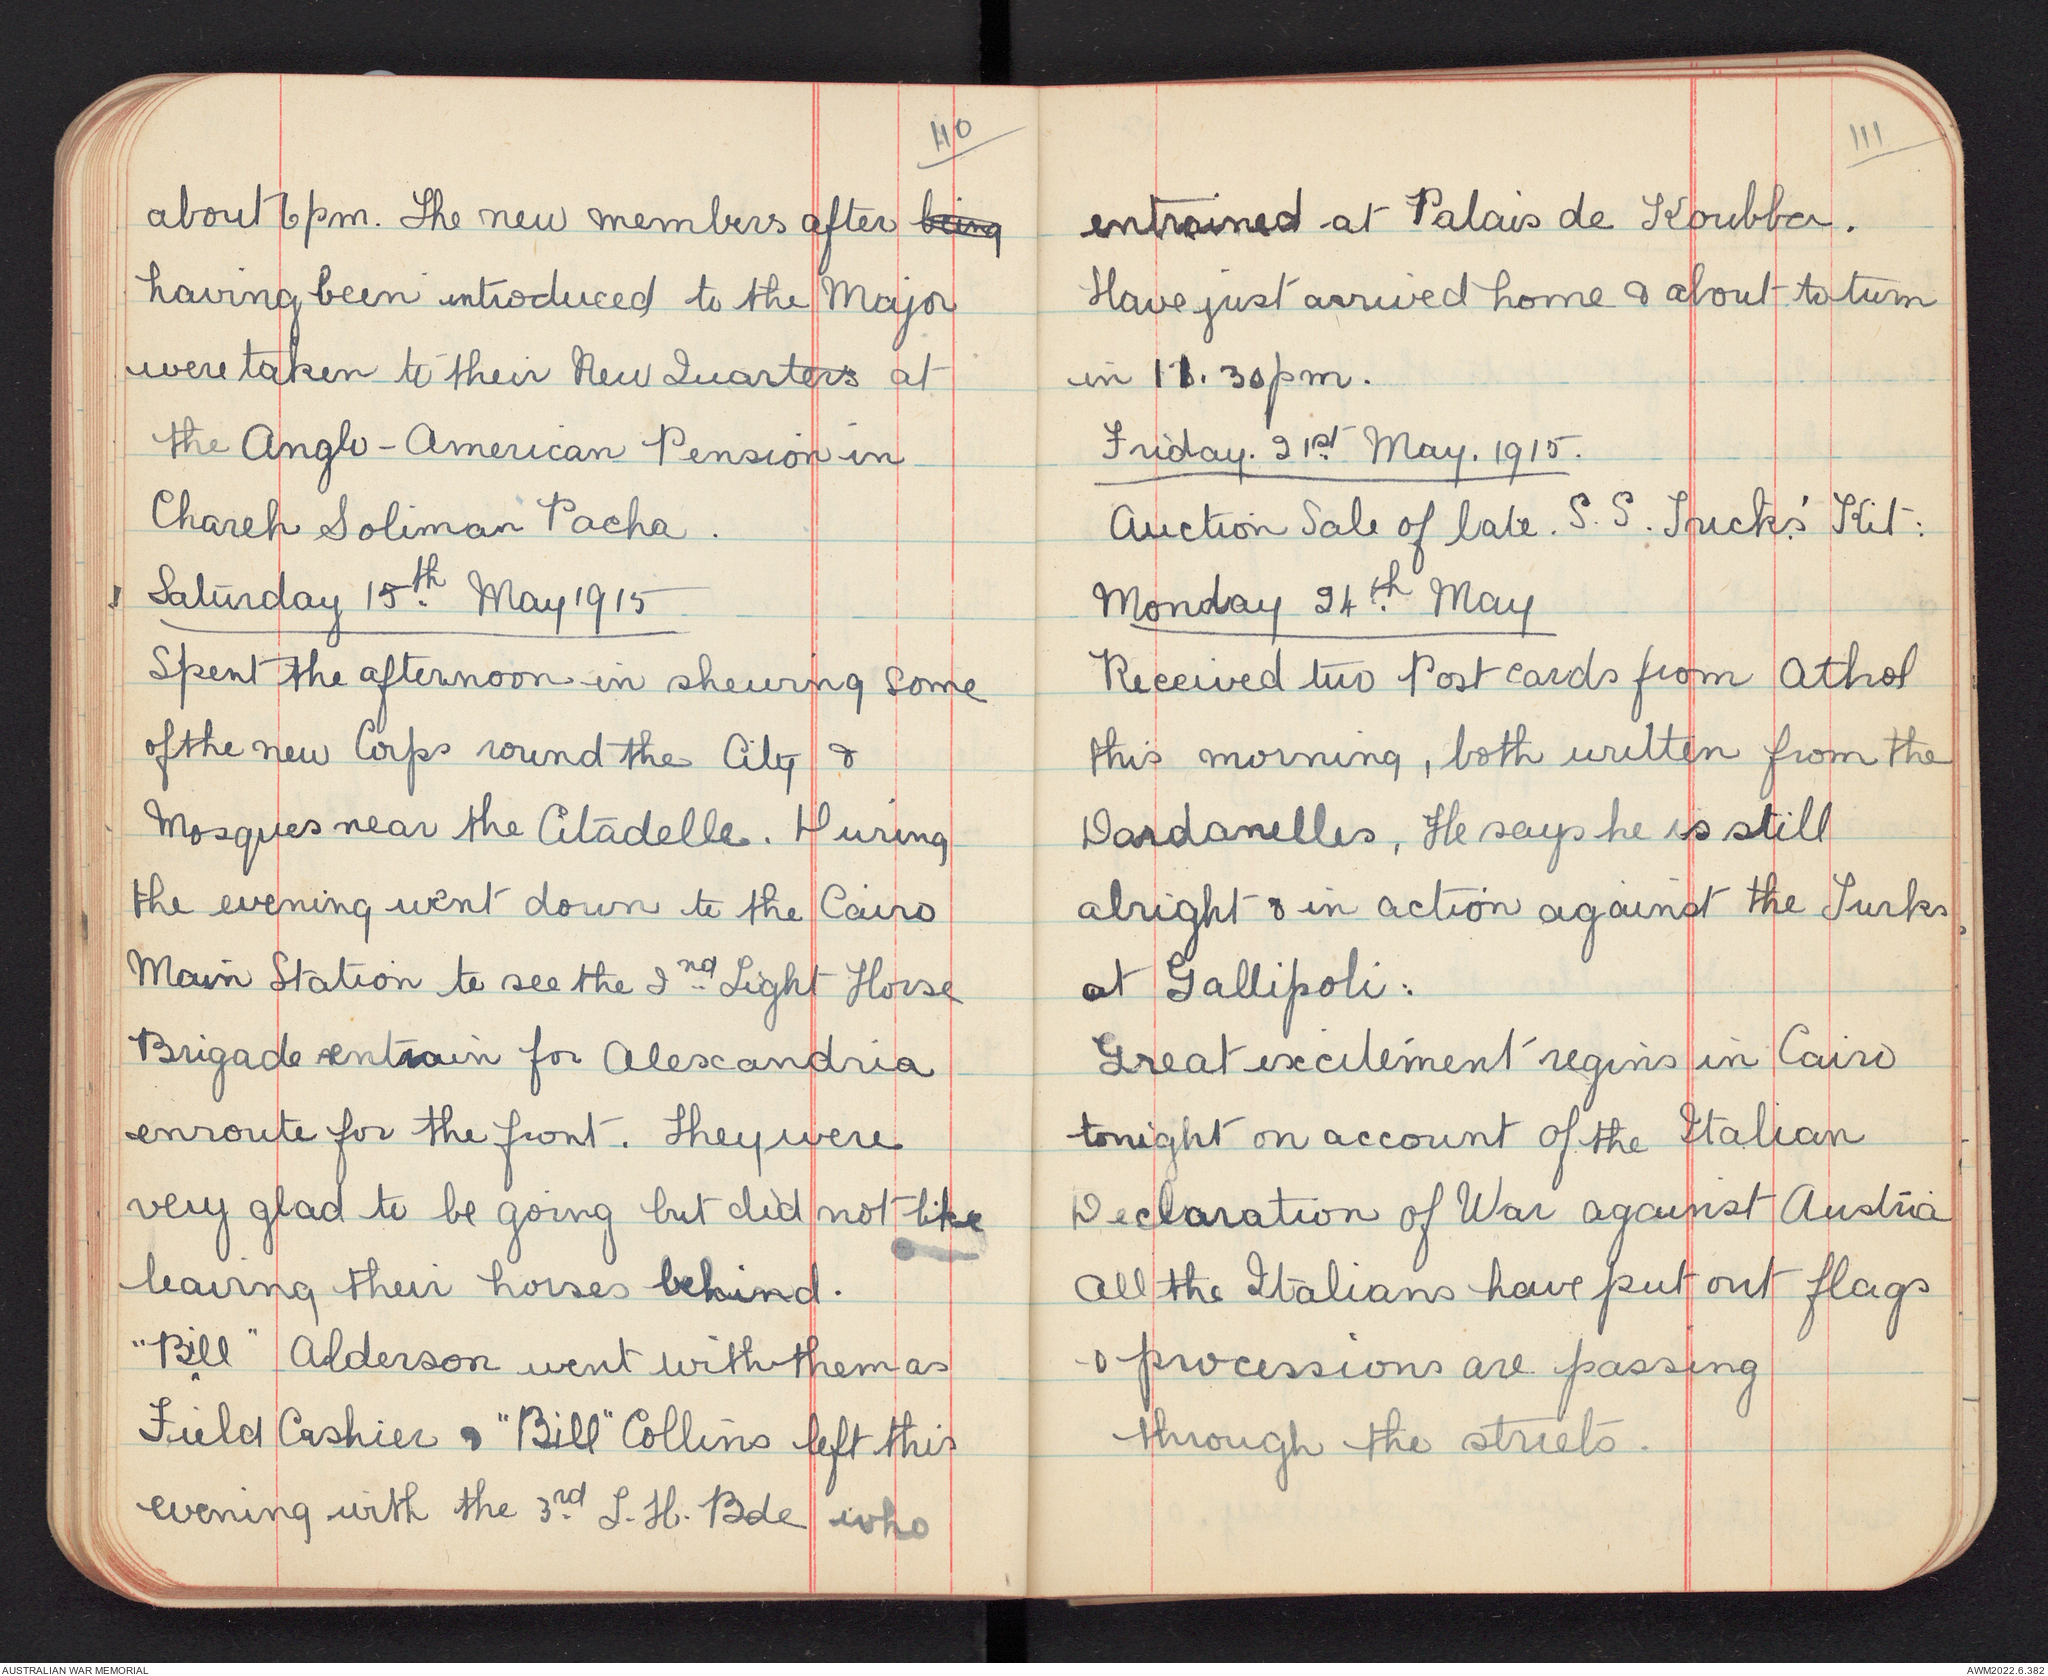 110
about 6pm. The new members after being
having been introduced to the Major
were taken to their New Quarters at
the Anglo-American Pension in
Chareh Soliman Pacha.
Saturday 15th May 1915
Spent the afternoon in shewing some
of the new Corps round the City &
Mosques near the Citadelle. During
the evening went down to the Cairo
Main Station to see the 2nd Light Horse
Brigade entrain for Alexandria
enroute for the front. They were
very glad to be going but did not like
leaving their horses behind.
"Bill" Alderson went with them as
Field Cashier & "Bill" Collins left this
evening with the 3rd L.H. Bde who
111
entrained at Palais de Koubba.
Have just arrived home & about to turn
in 11.30pm.
Friday. 21st May. 1915.
Auction Sale of late. S.S. Tucks' Kit:
Monday 24th May
Received two Post cards from Athol
this morning, both written from the
Dardanelles, He says he is still
alright & in action against the Turks
at Gallipoli:
Great excitement regins in Cairo
tonight on account of the Italian
Declaration of War against Austria
All the Italians have put out flags
& processions are passing
through the streets.
AUSTRALIAN WAR MEMORIAL
AWM2022.6.382